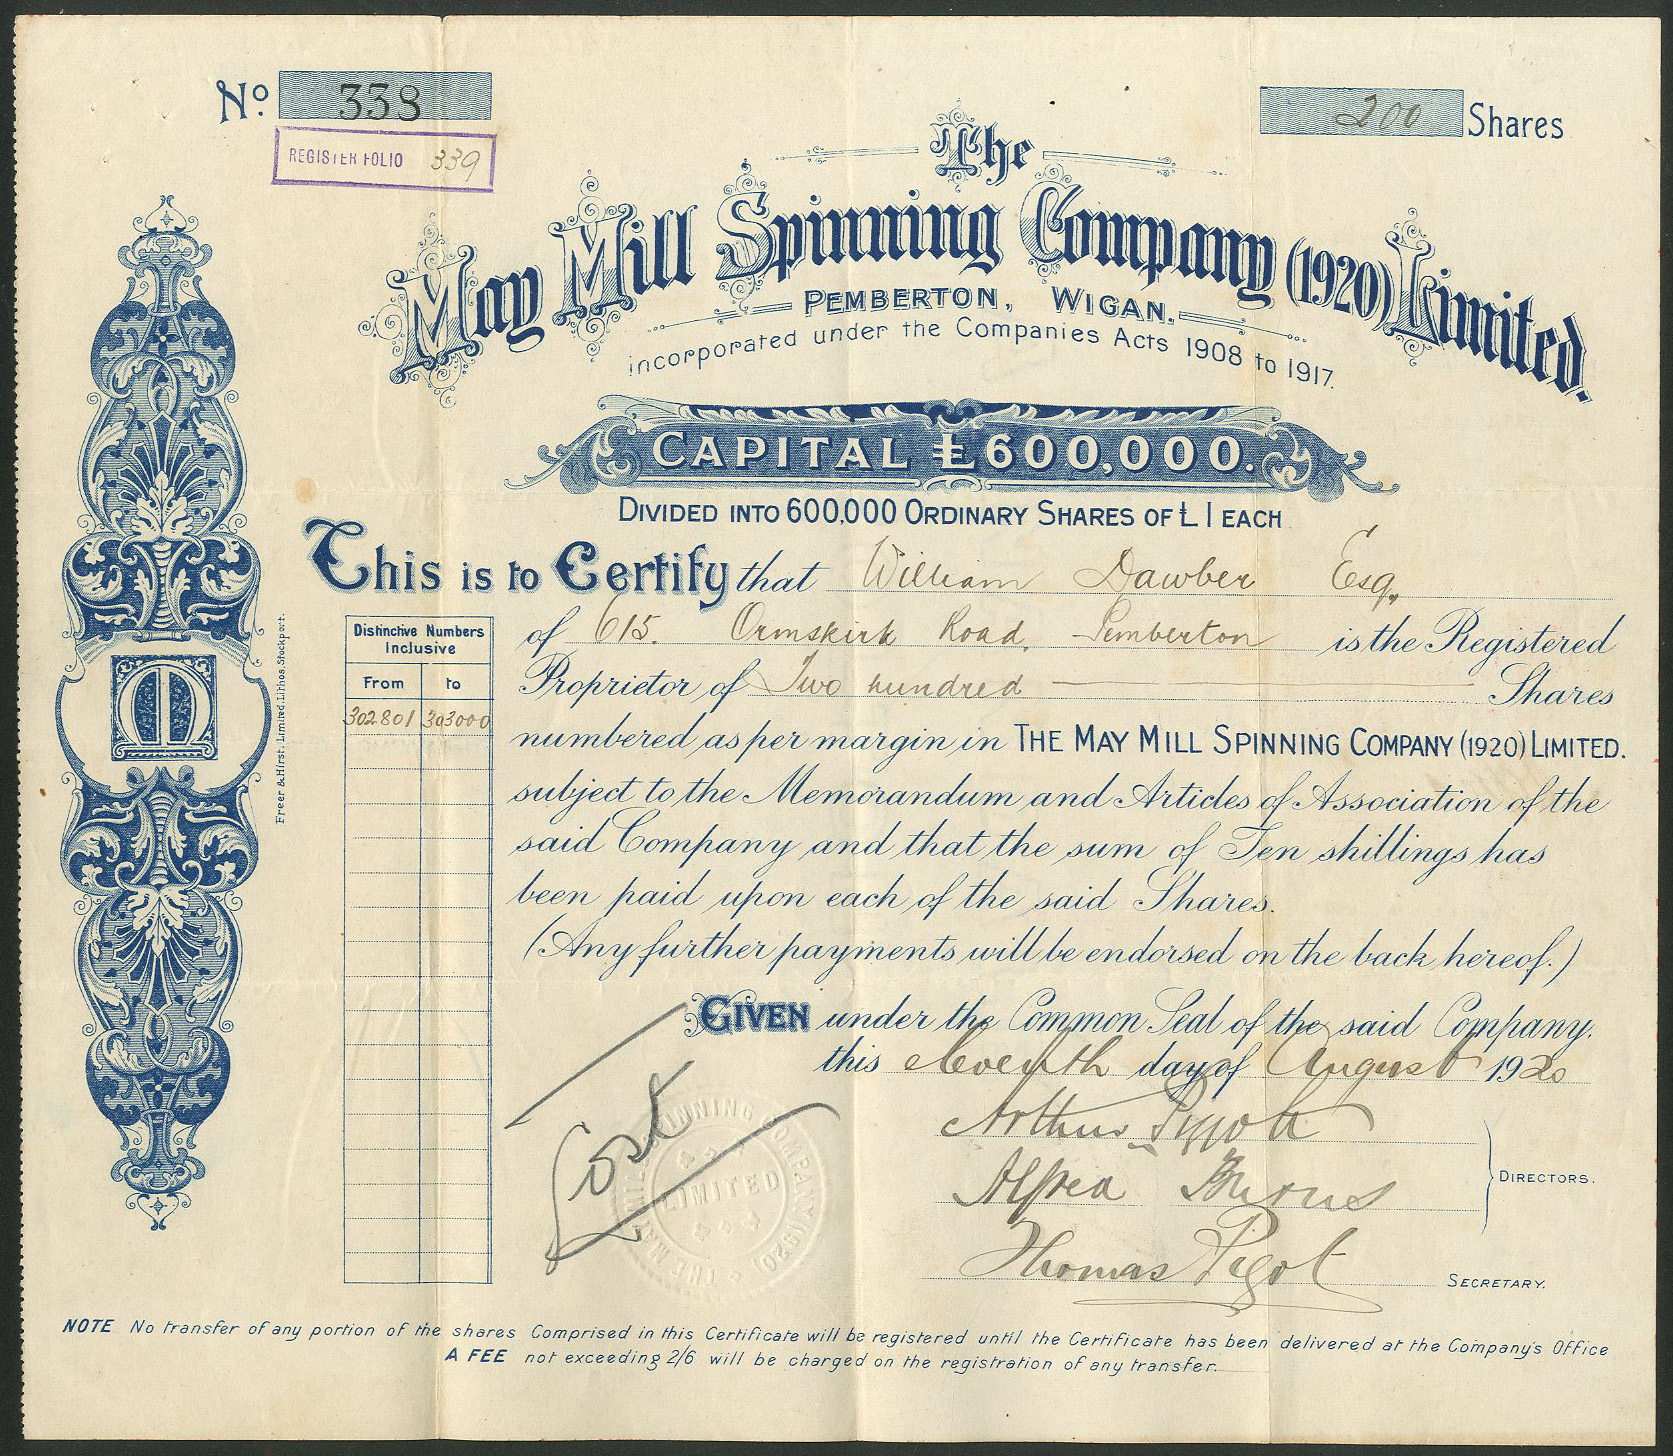 No. 338
200 Shares
REGISTER FOLIO 339
The
May Mill Spinning Company (1920) Limited.
PEMBERTON, WIGAN.
incorporated under the Companies Acts 1908 to 1917.
CAPITAL £600,000.
DIVIDED INTO 600,000 ORDINARY SHARES OF £1 EACH
This is to Certify that William Dawber Esq.
of 615. Ormskirk Road, Pemberton is the Registered
Proprietor of Two hundred Shares
numbered as per margin in THE MAY MILL SPINNING COMPANY (1920) LIMITED.
subject to the Memorandum and Articles of Association of the
said Company and that the sum of Ten shillings has
been paid upon each of the said Shares.
(Any further payments will be endorsed on the back hereof.)
GIVEN under the Common Seal of the said Company.
this eleventh day of August 1920
Distinctive Numbers
Inclusive
From to
302801 303000
M
Freer & Hirst, Limited. Lithos. Stockport.
THE MAY MILL SPINNING COMPANY (1920)
LIMITED
Arthur
Alfred Burns
DIRECTORS.
Thomas Pigot
SECRETARY.
NOTE No transfer of any portion of the shares Comprised in this Certificate will be registered until the Certificate has been delivered at the Company's Office
A FEE not exceeding 2/6 will be charged on the registration of any transfer.